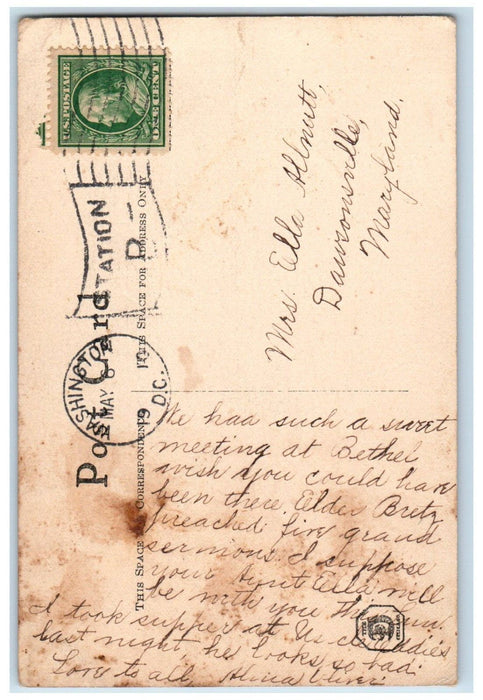 U.S. POSTAGE
ONE CENT
STATION
WASHINGTON
MAY
D.C.
Post Card
THIS SPACE FOR ADDRESS ONLY
THIS SPACE CORRESPONDENCE
Mrs. Ella Allnutt,
Dawsonville,
Maryland.
We had such a sweet
meeting at Bethel
wish you could have
been there. Elder Bretz
preached five grand
sermons. I suppose
your Aunt Ella will
be with you this
I took supper at Us
last night, he looks so bad.
Love to all,